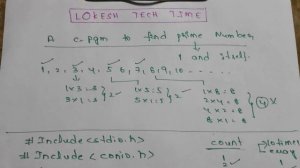 LOKESH TECH TIME
A C-pgm to find prime Number,
1 and itself.
1, 2, 3, 4, 5, 6, 7, 8, 9, 10, .....
1x3=3 1x5=5 1x8=8
3x1=3 2 5x1=5 2 2x4=8
4x2=8 4 X
8x1=8
#Include<stdio.h>
#Include<conio.h>
count
1
2